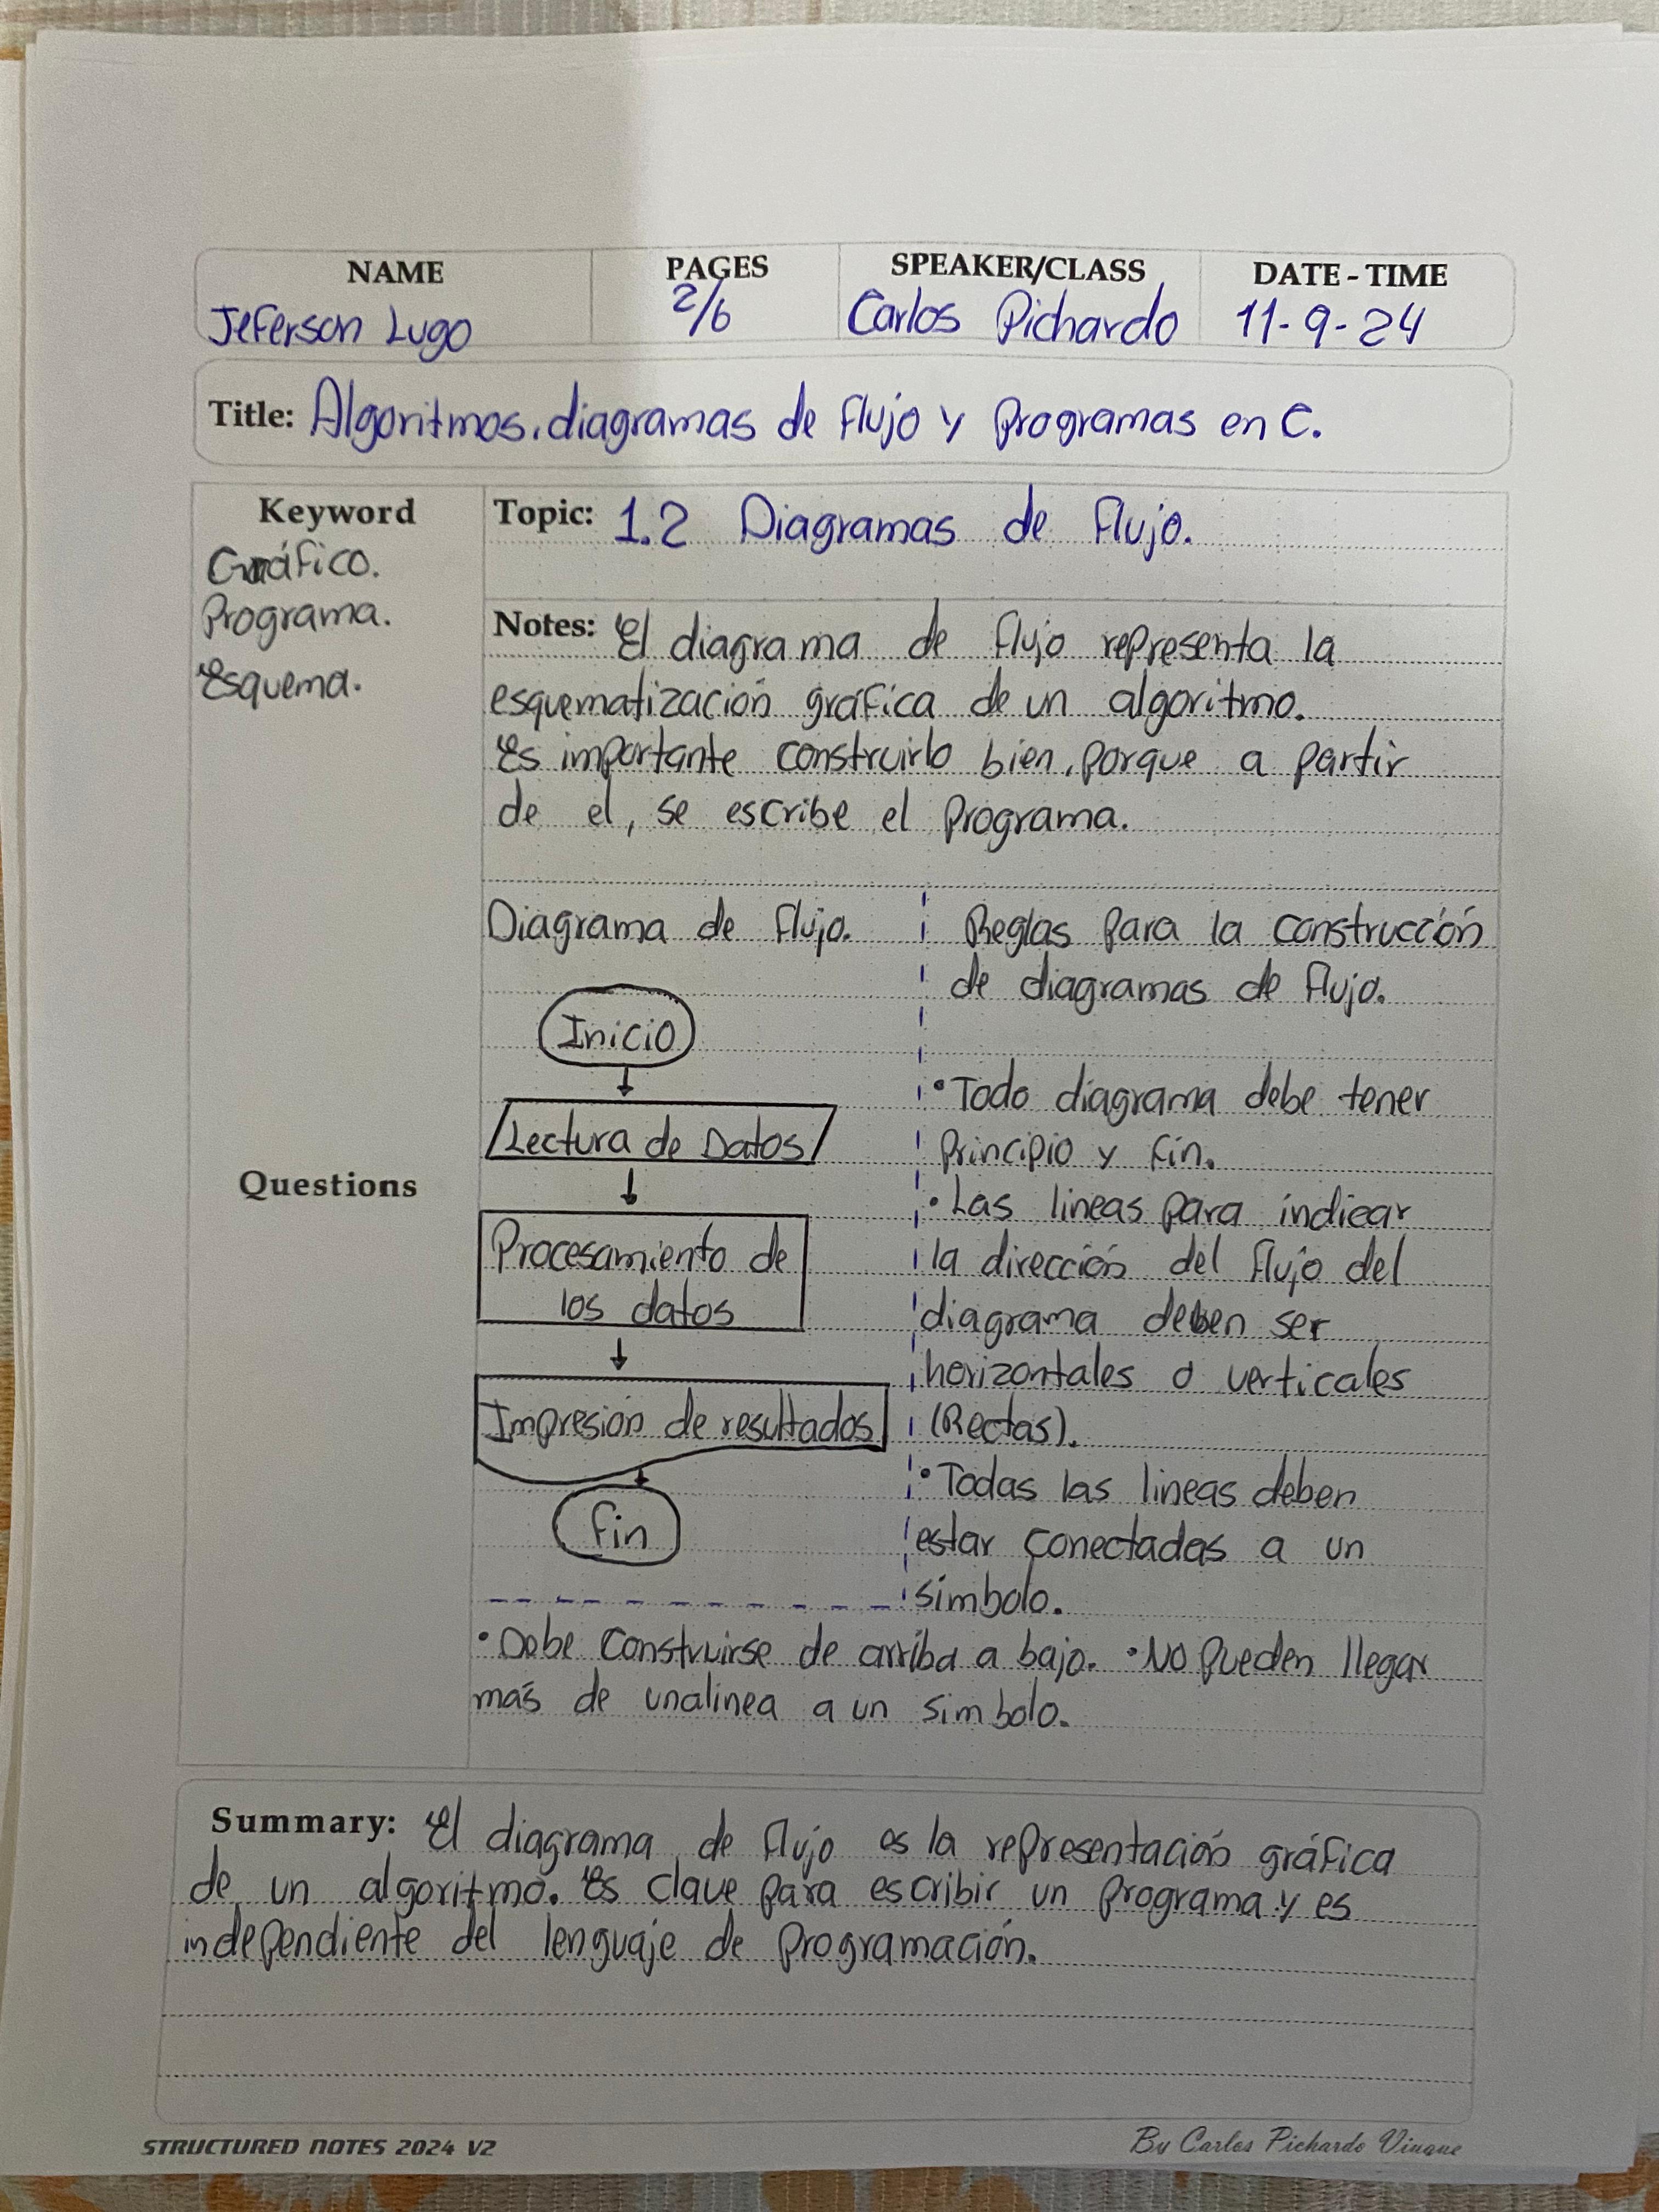 NAME PAGES SPEAKER/CLASS DATE - TIME
Jeferson Lugo 2/6 Carlos Pichardo 11-9-24
Title: Algoritmos, diagramas de flujo y programas en C.
Keyword
Gráfico.
Programa.
Esquema.
Questions
Topic: 1.2 Diagramas de flujo.
Notes: El diagrama de flujo representa la
esquematización gráfica de un algoritmo.
Es importante construirlo bien, porque a partir
de el, se escribe el programa.
Diagrama de flujo.
Inicio
Lectura de Datos
Procesamiento de
los datos
Impresión de resultados
fin
Reglas para la construcción
de diagramas de flujo.
• Todo diagrama debe tener
principio y fin.
• Las lineas para indicar
la dirección del flujo del
diagrama deben ser
horizontales o verticales
(Rectas).
• Todas las lineas deben
estar conectadas a un
símbolo.
• Debe construirse de arriba a bajo. • No pueden llegar
más de una linea a un simbolo.
Summary: El diagrama de flujo es la representación gráfica
de un algoritmo. Es clave para escribir un programa y es
independiente del lenguaje de programación.
STRUCTURED NOTES 2024 V2
By Carlos Pichardo Viuque